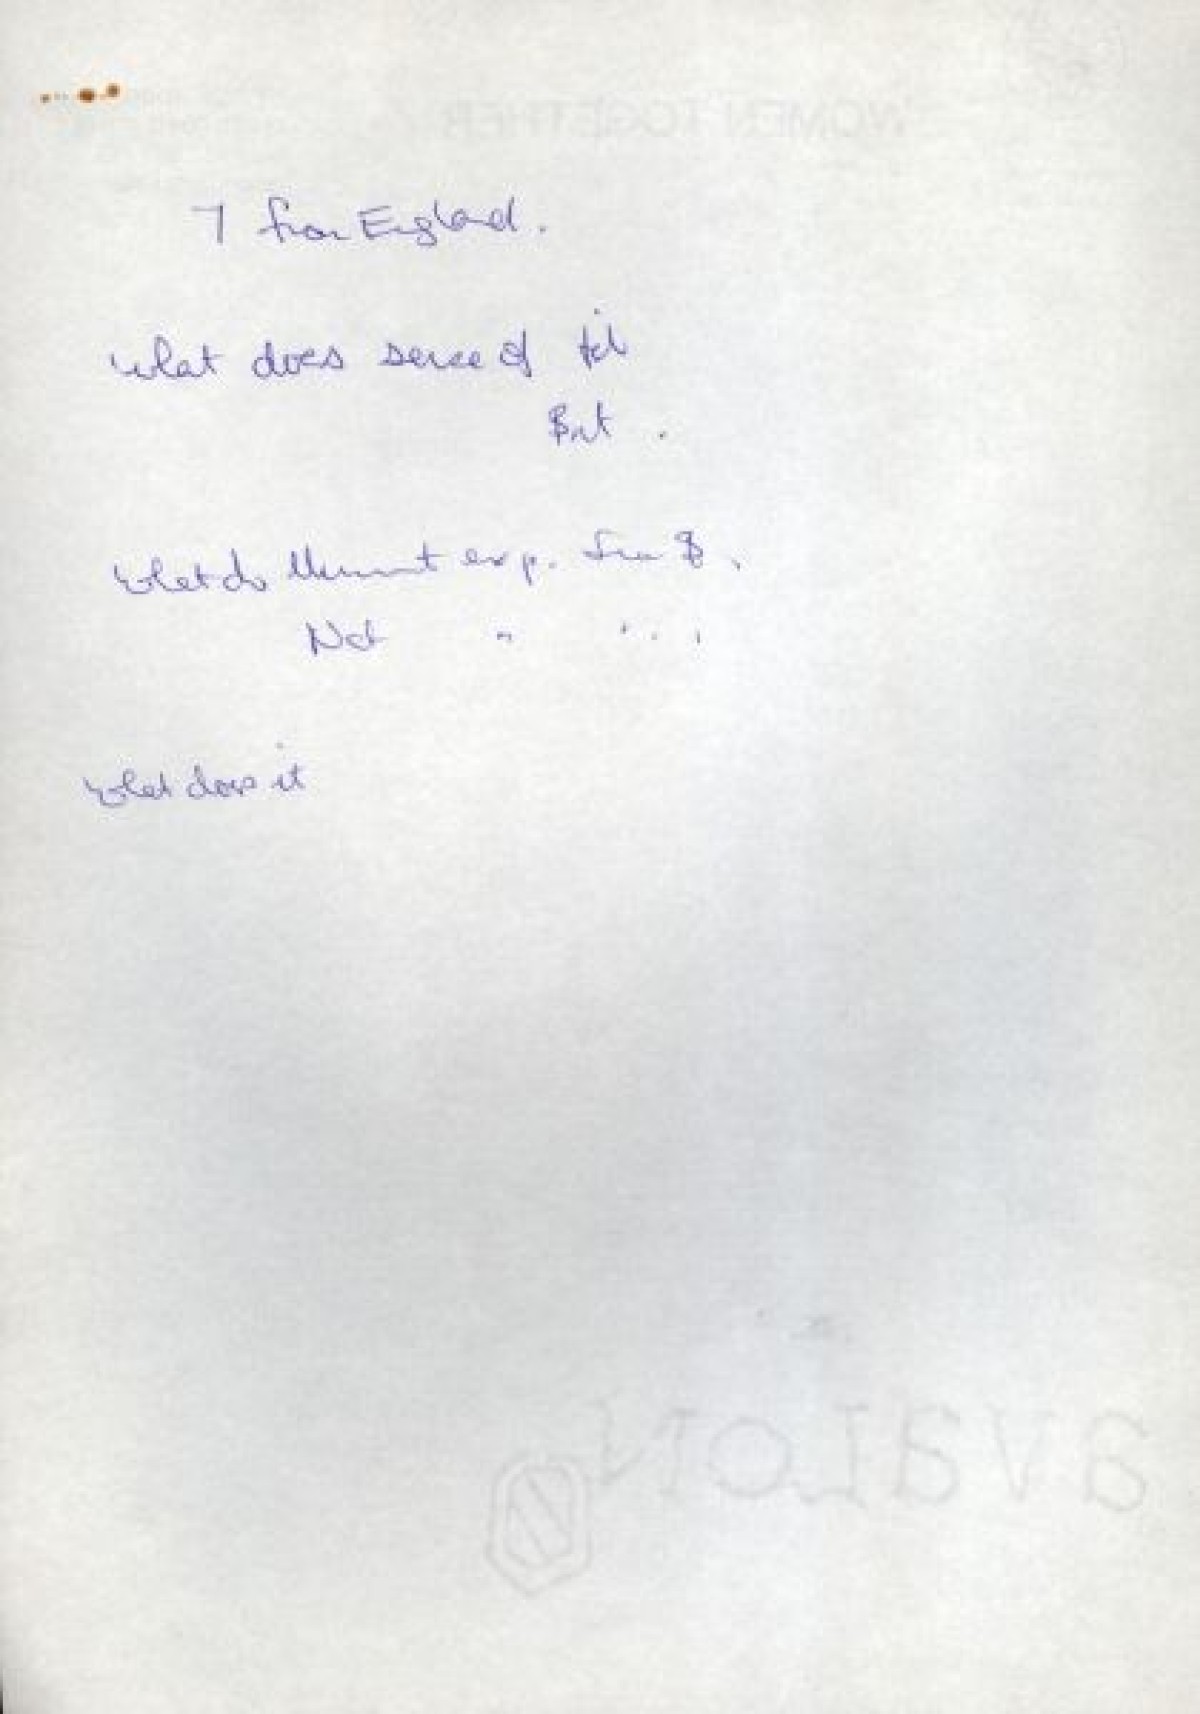 WOMEN TOGETHER
7 from England.
What does sense of
Brit .
What do exp. from B.
Not " " "
What does it
avalon